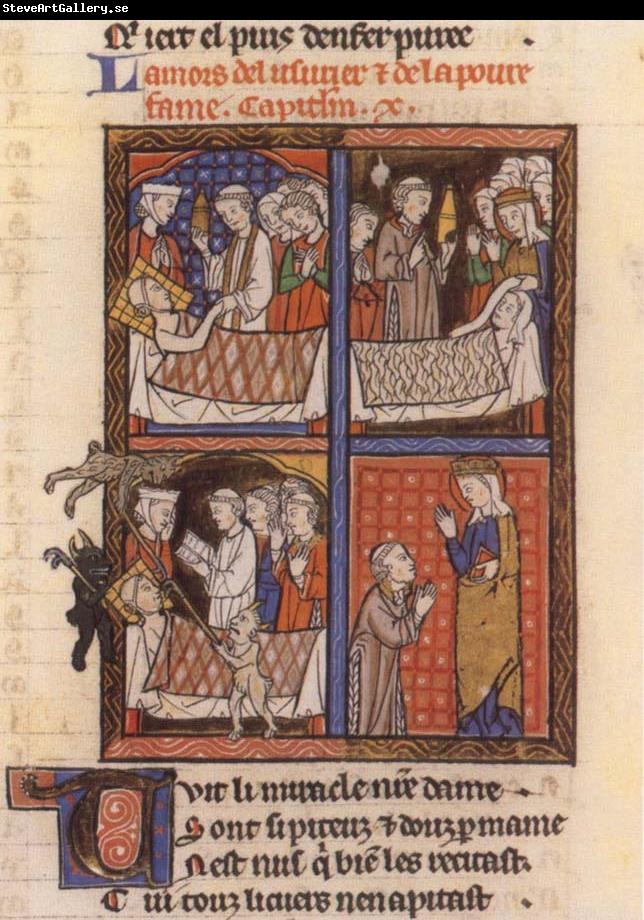 SteveArtGallery.se
Q̄r iert el puis denfer puree .
La mors del usurier ⁊ de la poure
fame. Capitlm. x.
Tuit li miracle nr̄e dame
Sont si piteuz ⁊ douz p mame
Nest nus q̇ biē les recitast.
Cui touz li cuers nen apitast .